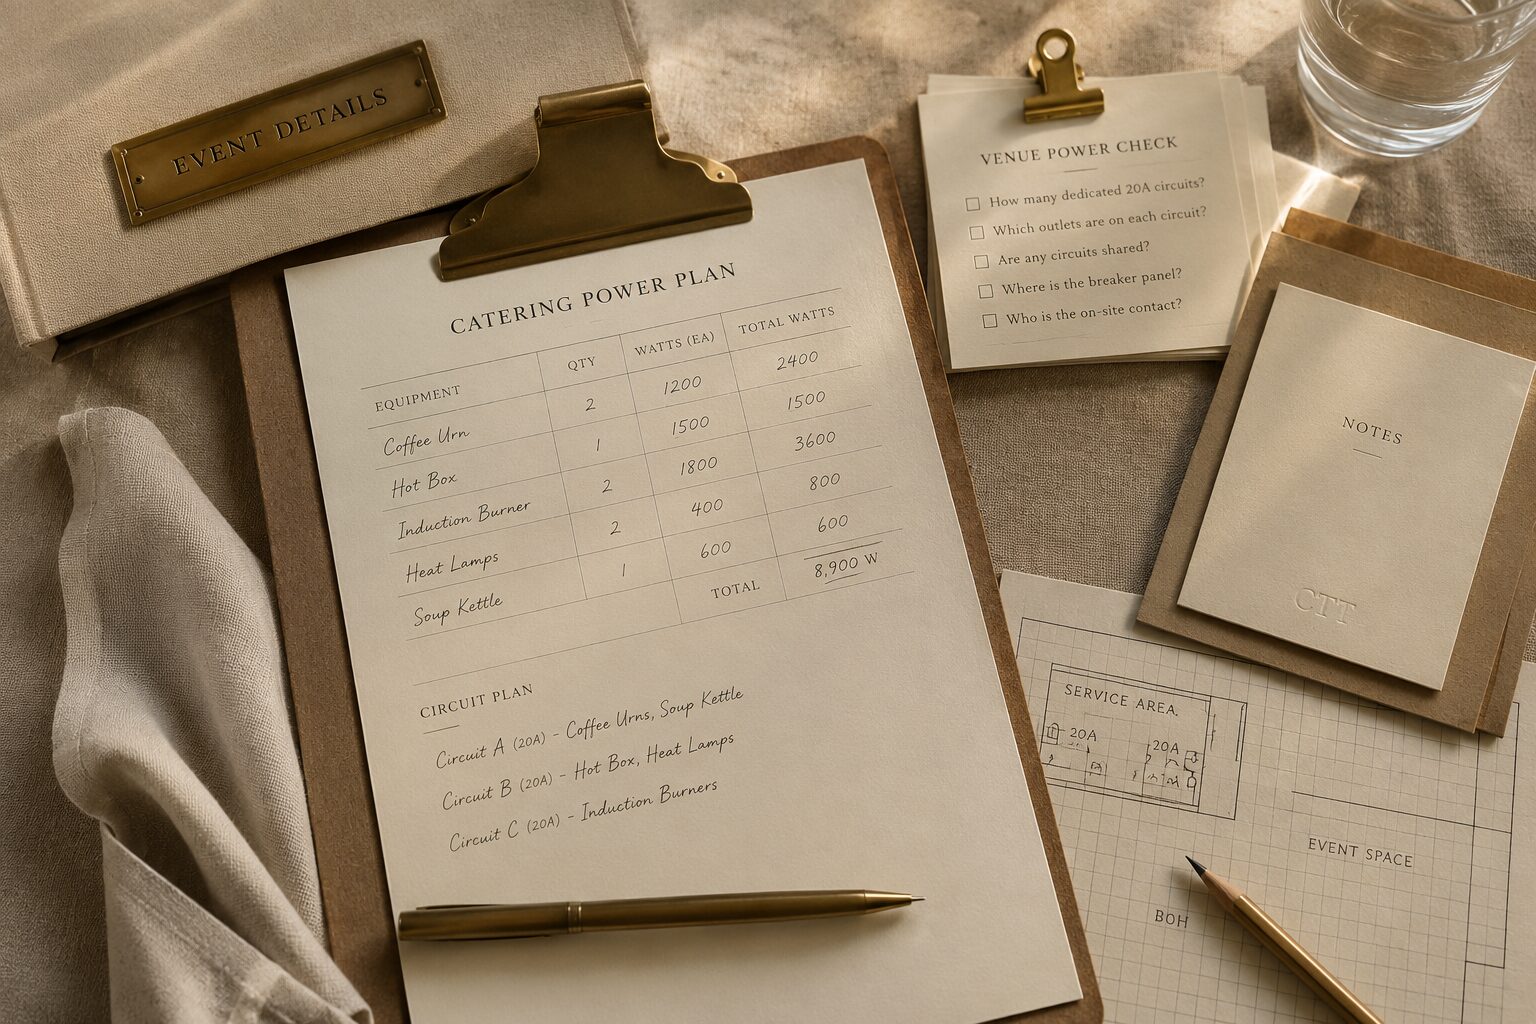 EVENT DETAILS
CATERING POWER PLAN
EQUIPMENT QTY WATTS (EA) TOTAL WATTS
Coffee Urn 2 1200 2400
Hot Box 1 1500 1500
Induction Burner 2 1800 3600
Heat Lamps 2 400 800
Soup Kettle 1 600 600
TOTAL 8,900 W
CIRCUIT PLAN
Circuit A (20A) – Coffee Urns, Soup Kettle
Circuit B (20A) – Hot Box, Heat Lamps
Circuit C (20A) – Induction Burners
VENUE POWER CHECK
How many dedicated 20A circuits?
Which outlets are on each circuit?
Are any circuits shared?
Where is the breaker panel?
Who is the on-site contact?
NOTES
CTT
SERVICE AREA.
20A 20A
EVENT SPACE
BOH